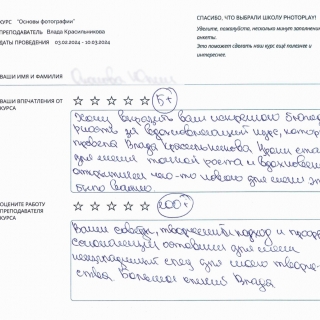 КУРС "Основы фотографии"
ПРЕПОДАВАТЕЛЬ Влада Красильникова
ДАТЫ ПРОВЕДЕНИЯ 03.02.2024 - 10.03.2024
СПАСИБО, ЧТО ВЫБРАЛИ ШКОЛУ PHOTOPLAY!
Уделите, пожалуйста, несколько минут заполнению
анкеты.
Это поможет сделать наш курс ещё полезнее и
интереснее.
ВАШИ ИМЯ И ФАМИЛИЯ
ВАШИ ВПЕЧАТЛЕНИЯ ОТ
КУРСА
5+
Хочу выразить вам искреннюю
за вдохновляющий курс, котор
провела Влада Красильникова Уроки ста
для меня точкой роста и вдохновен
чего-то нового для меня это
было важно.
ОЦЕНИТЕ РАБОТУ
ПРЕПОДАВАТЕЛЯ
КУРСА
200+
Ваши советы, творческий подход и
оставили для меня
след для моего творче-
ства Влада